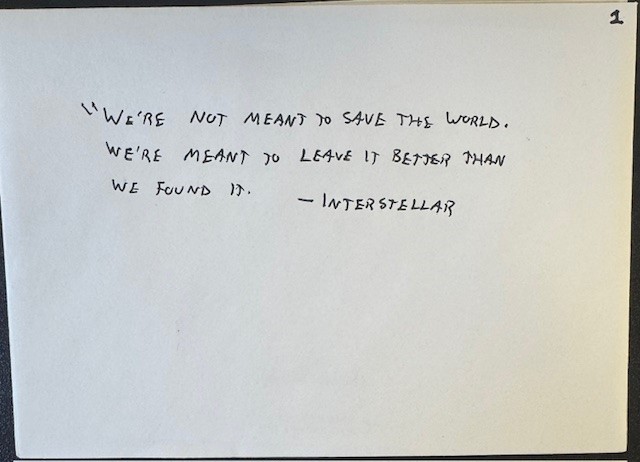 1
"WE'RE NOT MEANT TO SAVE THE WORLD.
WE'RE MEANT TO LEAVE IT BETTER THAN
WE FOUND IT. — INTERSTELLAR